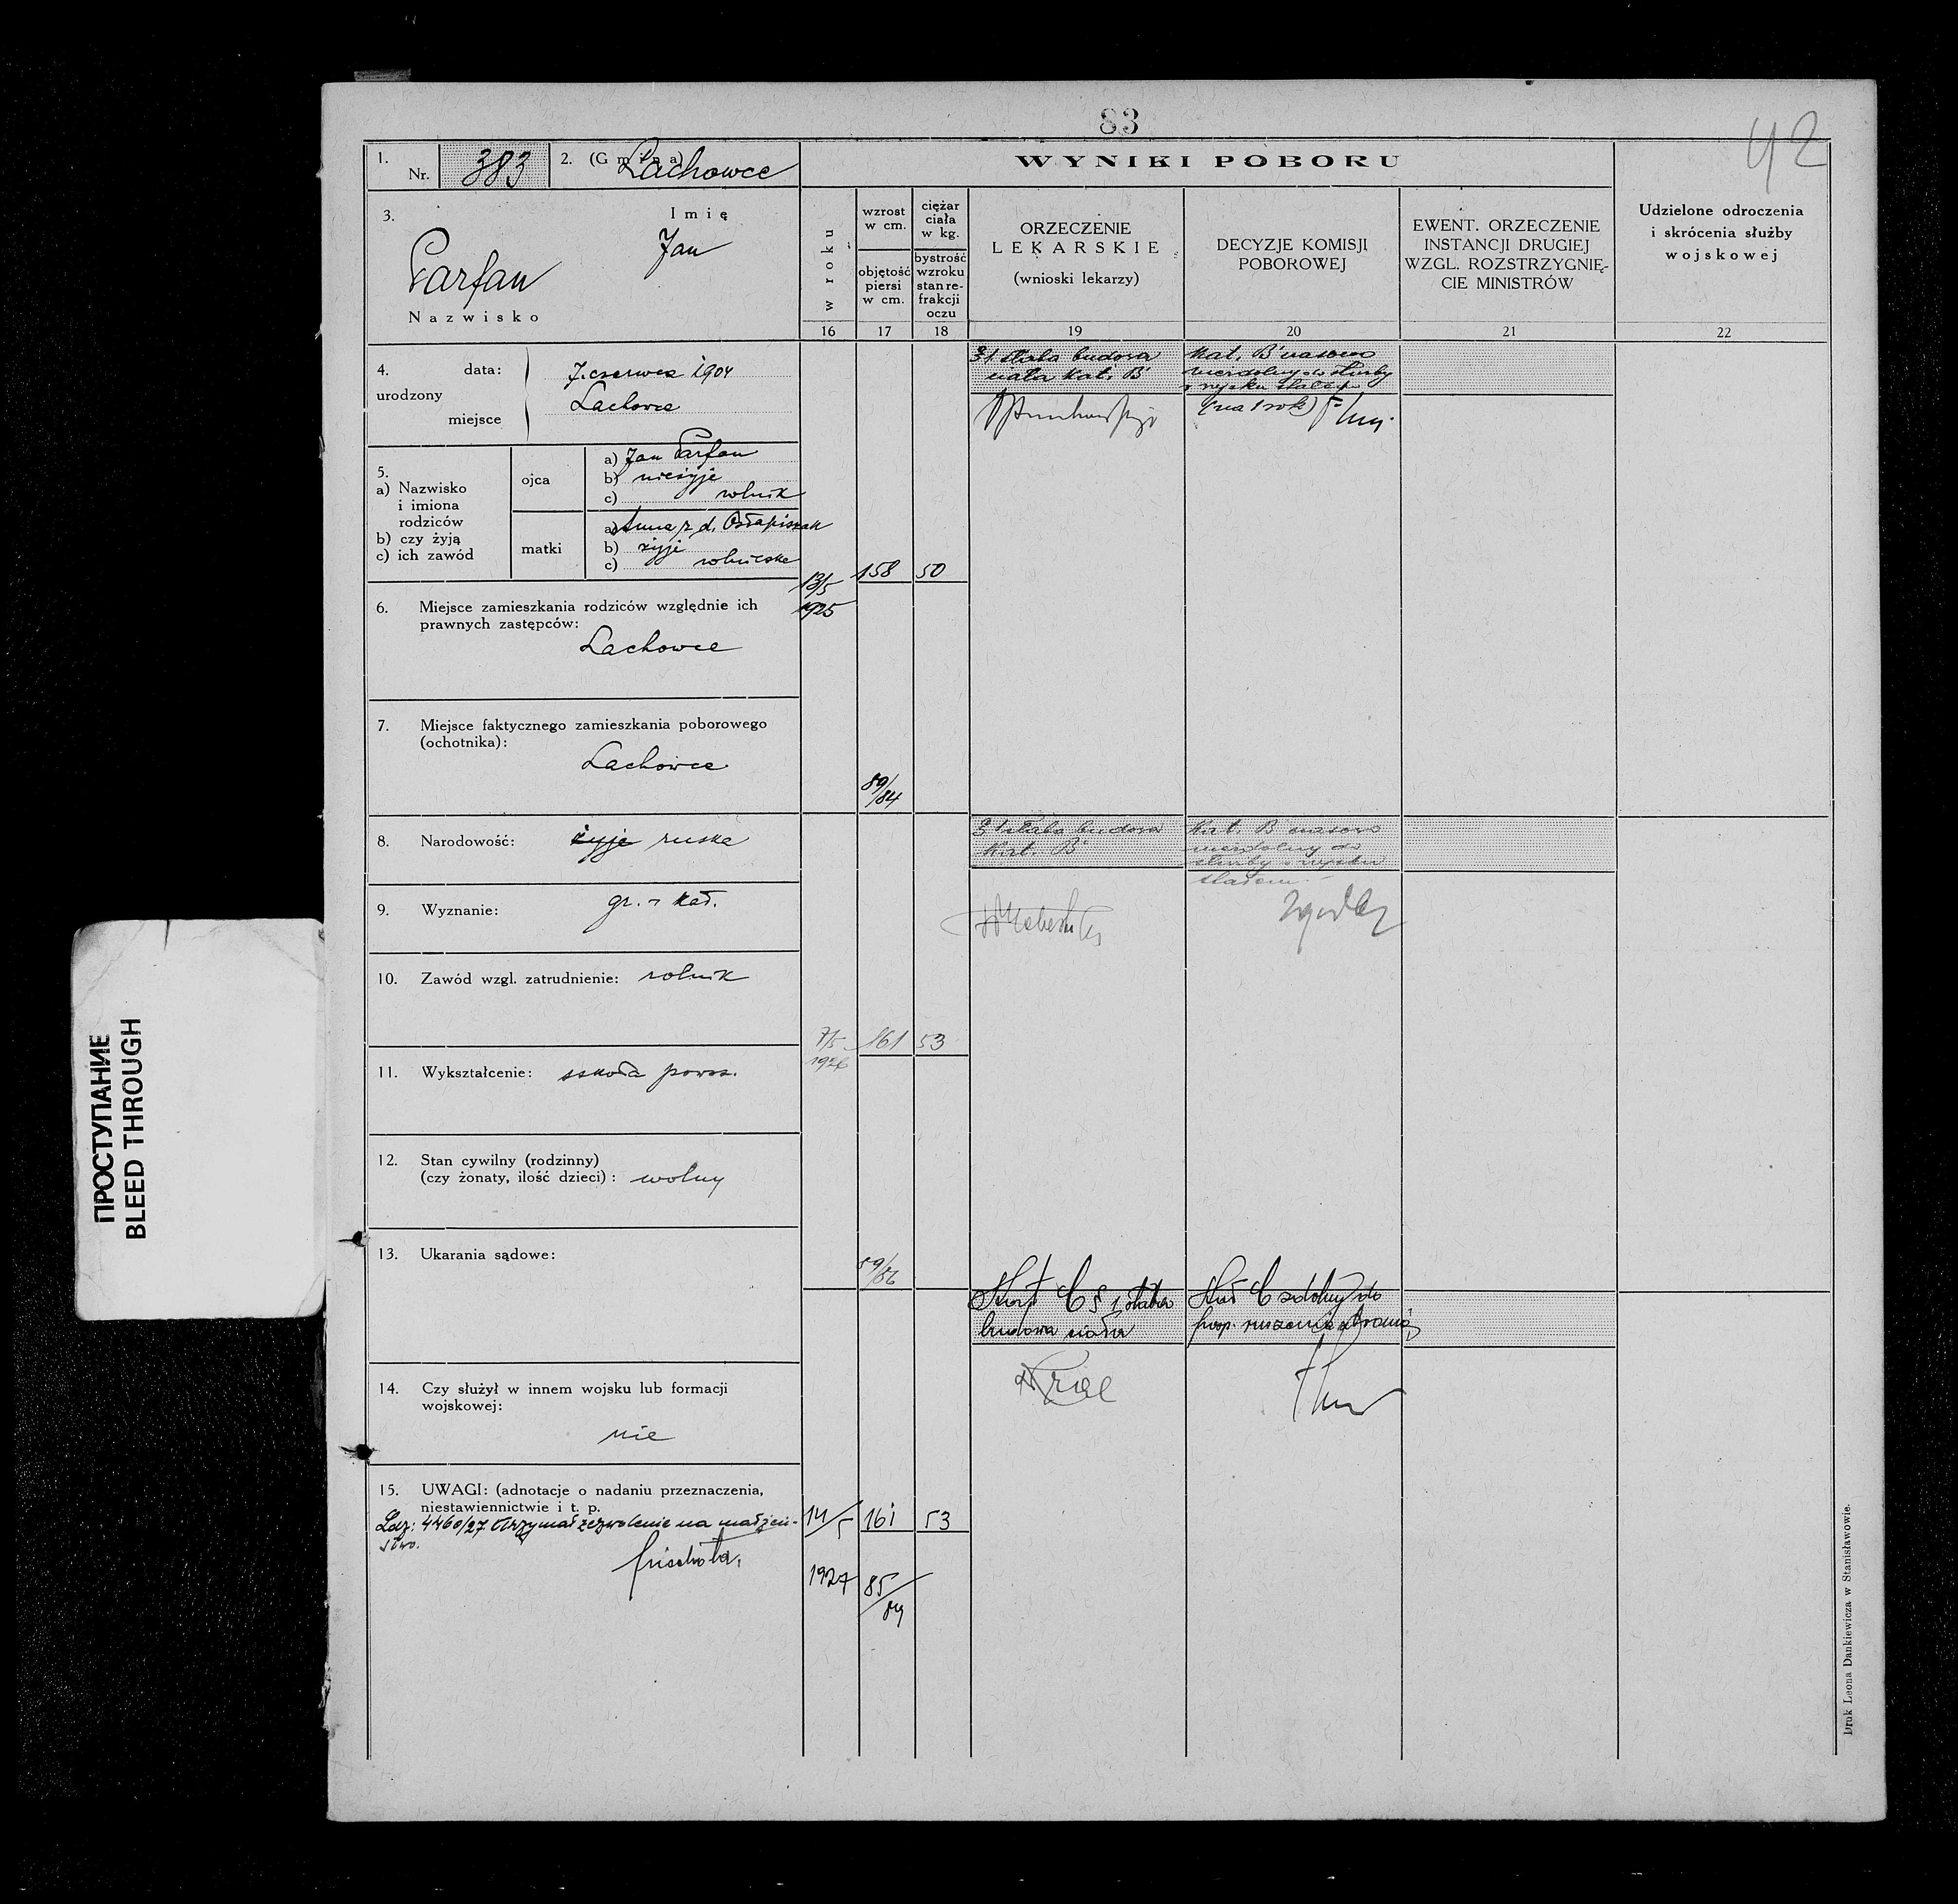 83
42
1.
Nr. 383
2. (Gmina) Lachowce
WYNIKI POBORU
3.
Imię
Jan
Parfan
Nazwisko
w roku
wzrost
w cm.
objętość
piersi
w cm.
ciężar
ciała
w kg.
bystrość
wzroku
stan re-
frakcji
oczu
ORZECZENIE
LEKARSKIE
(wnioski lekarzy)
DECYZJE KOMISJI
POBOROWEJ
EWENT. ORZECZENIE
INSTANCJI DRUGIEJ
WZGL. ROZSTRZYGNIĘ-
CIE MINISTRÓW
Udzielone odroczenia
i skrócenia służby
wojskowej
16 17 18 19 20 21 22
4.
urodzony
data: 7. czerwca 1904
miejsce Lachowce
5.
a) Nazwisko
i imiona
rodziców
b) czy żyją
c) ich zawód
ojca
a) Jan Parfan
b) nieżyje
c) rolnik
matki
a) Anna z d.
b) żyje
c) rolniczka
6. Miejsce zamieszkania rodziców względnie ich
prawnych zastępców:
Lachowce
7. Miejsce faktycznego zamieszkania poborowego
(ochotnika):
Lachowce
8. Narodowość: żyje ruska
9. Wyznanie: gr. - kat.
10. Zawód wzgl. zatrudnienie: rolnik
11. Wykształcenie: szkoła powsz.
12. Stan cywilny (rodzinny)
(czy żonaty, ilość dzieci): wolny
13. Ukarania sądowe:
14. Czy służył w innem wojsku lub formacji
wojskowej:
nie
15. UWAGI: (adnotacje o nadaniu przeznaczenia,
niestawiennictwie i t. p.
Ldz: 4460/27 Otrzymał zezwolenie na małżeń-
stwo.
13/5
1925
158 50
89/84
§1 słaba budowa
ciała Kat. B
Kat. B czasowo
niezdolny do służby
w wojsku stałem
(na 1 rok)
7/5
1926
161 53
89/86
§1 słaba budowa
Kat. B
Kat. B czasowo
niezdolny do
służby w wojsku
stałem.
14/5
1927
161 53
85/
Kat C § 1 słaba
budowa ciała
Kat C zdolny do
posp. ruszenia z bronią
Druk Leona Dankiewicza w Stanisławowie.
ПРОСТУПАНИЕ
BLEED THROUGH